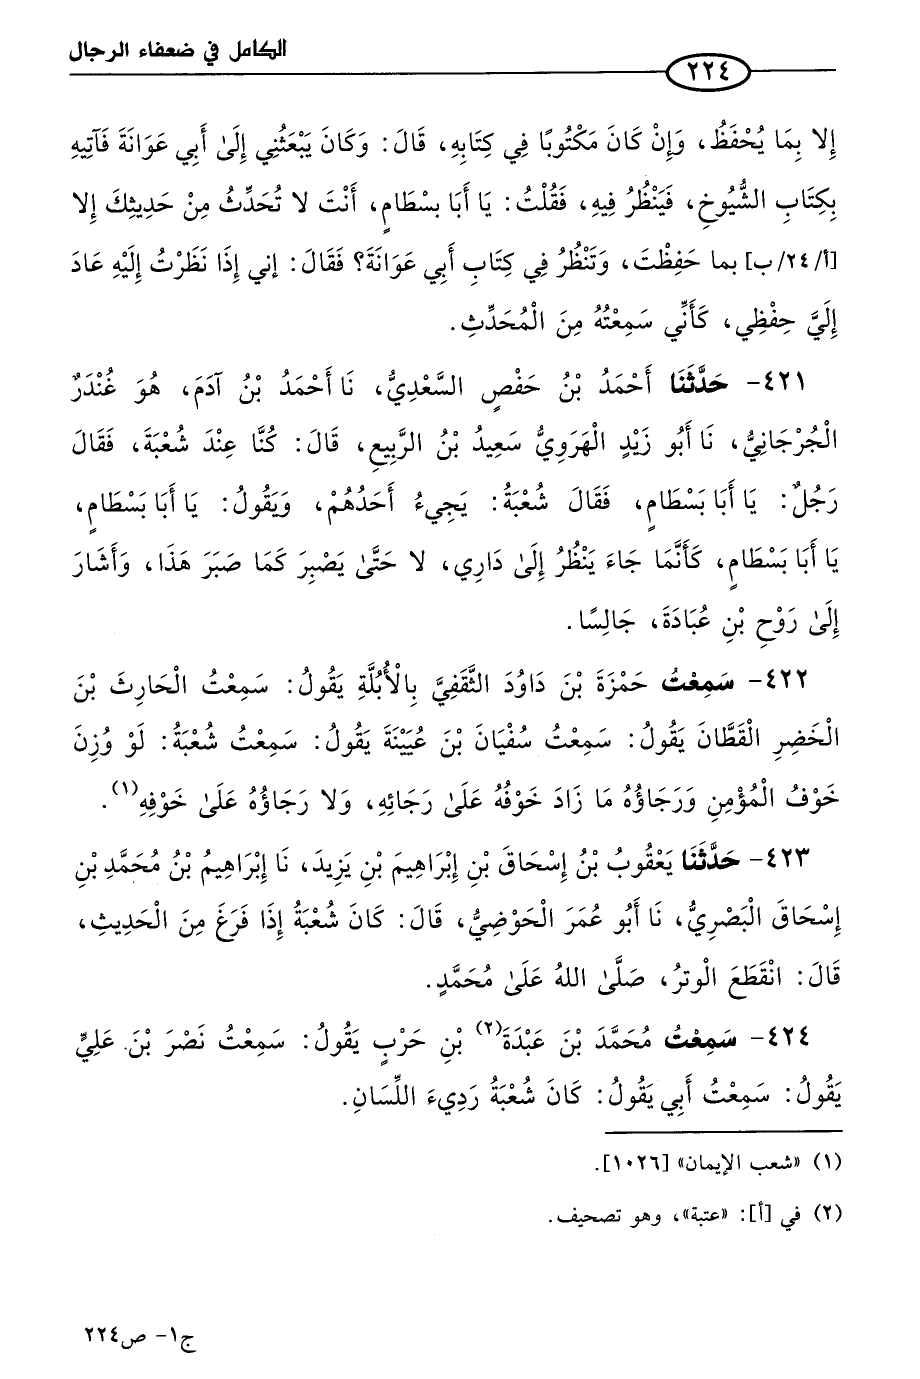 الكامل في ضعفاء الرجال
٢٢٤
إلا بِمَا يُحْفَظُ، وَإِنْ كَانَ مَكْتُوبًا فِي كِتَابِهِ، قَالَ: وَكَانَ يَبْعَثُنِي إِلَىٰ أَبِي عَوَانَةَ فَآتِيهِ
بِكِتَابِ الشُّيُوخِ، فَيَنْظُرُ فِيهِ، فَقُلْتُ: يَا أَبَا بِسْطَامٍ، أَنْتَ لا تُحَدِّثُ مِنْ حَدِيثِكَ إِلا
[أ/٢٤/ب] بما حَفِظْتَ، وَتَنْظُرُ فِي كِتَابِ أَبِي عَوَانَةَ؟ فَقَالَ: إني إِذَا نَظَرْتُ إِلَيْهِ عَادَ
إِلَيَّ حِفْظِي، كَأَنِّي سَمِعْتُهُ مِنَ الْمُحَدِّثِ.
٤٢١- حَدَّثَنَا أَحْمَدُ بْنُ حَفْصٍ السَّعْدِيُّ، نَا أَحْمَدُ بْنُ آدَمَ، هُوَ غُنْدَرٌ
الْجُرْجَانِيُّ، نَا أَبُو زَيْدٍ الْهَرَوِيُّ سَعِيدُ بْنُ الرَّبِيعِ، قَالَ: كُنَّا عِنْدَ شُعْبَةَ، فَقَالَ
رَجُلٌ: يَا أَبَا بَسْطَامٍ، فَقَالَ شُعْبَةُ: يَجِيءُ أَحَدُهُمْ، وَيَقُولُ: يَا أَبَا بَسْطَامٍ،
يَا أَبَا بَسْطَامٍ، كَأَنَّمَا جَاءَ يَنْظُرُ إِلَىٰ دَارِي، لا حَتَّىٰ يَصْبِرَ كَمَا صَبَرَ هَذَا، وَأَشَارَ
إِلَىٰ رَوْحِ بْنِ عُبَادَةَ، جَالِسًا.
٤٢٢- سَمِعْتُ حَمْزَةَ بْنَ دَاوُدَ الثَّقَفِيَّ بِالْأُبُلَّةِ يَقُولُ: سَمِعْتُ الْحَارِثَ بْنَ
الْخَضِرِ الْقَطَّانَ يَقُولُ: سَمِعْتُ سُفْيَانَ بْنَ عُيَيْنَةَ يَقُولُ: سَمِعْتُ شُعْبَةُ: لَوْ وُزِنَ
خَوْفُ الْمُؤْمِنِ وَرَجَاؤُهُ مَا زَادَ خَوْفُهُ عَلَىٰ رَجَائِهِ، وَلا رَجَاؤُهُ عَلَىٰ خَوْفِهِ(١).
٤٢٣- حَدَّثَنَا يَعْقُوبُ بْنُ إِسْحَاقَ بْنِ إِبْرَاهِيمَ بْنِ يَزِيدَ، نَا إِبْرَاهِيمُ بْنُ مُحَمَّدِ بْنِ
إِسْحَاقَ الْبَصْرِيُّ، نَا أَبُو عُمَرَ الْحَوْضِيُّ، قَالَ: كَانَ شُعْبَةُ إِذَا فَرَغَ مِنَ الْحَدِيثِ،
قَالَ: انْقَطَعَ الْوِترُ، صَلَّىٰ اللهُ عَلَىٰ مُحَمَّدٍ.
٤٢٤- سَمِعْتُ مُحَمَّدَ بْنَ عَبْدَةَ(٢) بْنِ حَرْبٍ يَقُولُ: سَمِعْتُ نَصْرَ بْنَ عَلِيٍّ
يَقُولُ: سَمِعْتُ أَبِي يَقُولُ: كَانَ شُعْبَةُ رَدِيءَ اللِّسَانِ.
(١) «شعب الإيمان» [١٠٢٦].
(٢) في [أ]: «عتبة»، وهو تصحيف.
ج١- ص٢٢٤